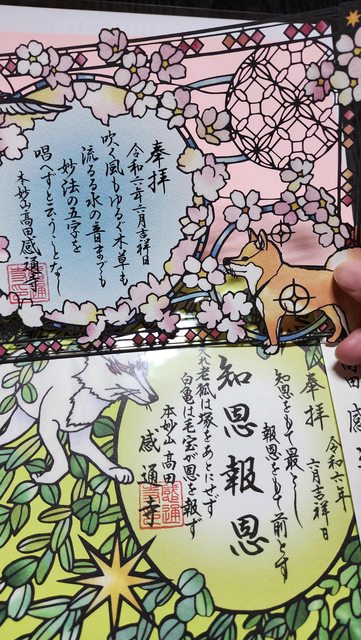 奉拝
令和六年六月吉祥日
吹く風もゆるぐ木草も
流るる水の音までも
妙法の五字を
唱へずと云うことなし
本妙山高田感通寺
奉拝
令和六年
六月吉祥日
知恩をもて最とし
報恩をもて前とす
知恩報恩
夫れ老狐は塚をあとにせず
白亀は毛宝が恩を報ず
本妙山高田
感通寺